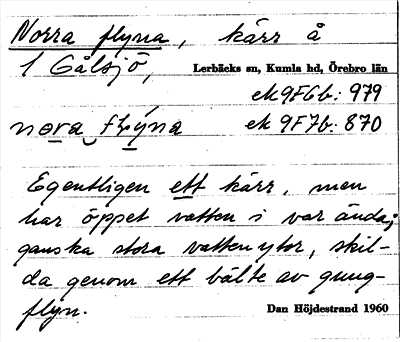 Norra flyna, kärr å
1 Gålsjö, Lerbäcks sn, Kumla hd, Örebro län
ek 9F6b: 979
nora flýna ek 9F7b: 870
Egentligen ett kärr, men
har öppet vatten i var ända;
ganska stora vattenytor, skil-
da genom ett bälte av gung-
flyn.
Dan Höjdestrand 1960